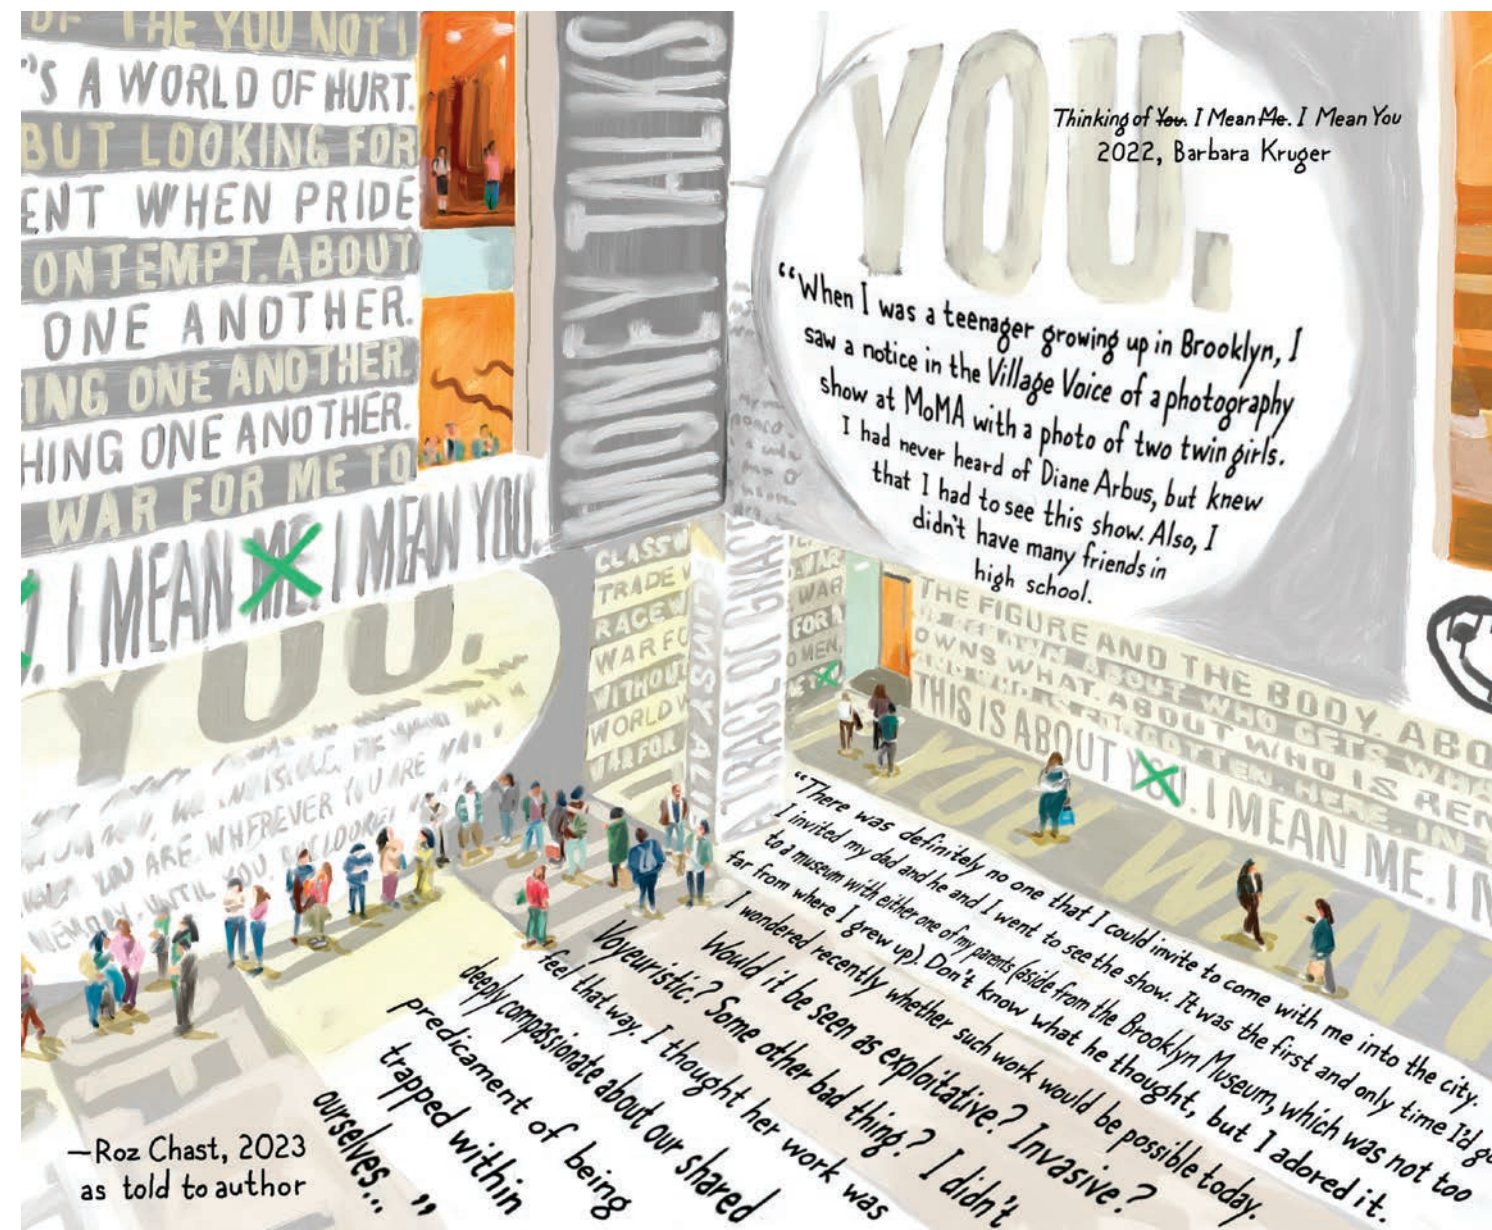 OF THE YOU NOT I
'S A WORLD OF HURT.
BUT LOOKING FOR
ENT WHEN PRIDE
ONTEMPT. ABOUT
ONE ANOTHER.
ING ONE ANOTHER.
HING ONE ANOTHER.
WAR FOR ME TO
I MEAN ME. I MEAN YOU.
YOU.
WHEREVER YOU ARE
YOU ARE
MEMORY. UNTIL YOU
MONEY TALKS
YOU.
Thinking of You. I Mean Me. I Mean You
2022, Barbara Kruger
“When I was a teenager growing up in Brooklyn, I
saw a notice in the Village Voice of a photography
show at MoMA with a photo of two twin girls.
I had never heard of Diane Arbus, but knew
that I had to see this show. Also, I
didn't have many friends in
high school.
CLASS W
TRADE W
RACE W
WAR FO
WITHOU
WORLD W
WAR FOR
A WAR
WAR
FOR A
OMEN.
THE FIGURE AND THE BODY. ABO
ABOUT WHO GETS WHA
OWNS WHAT. ABOUT WHO IS REM
FORGOTTEN. HERE. IN
THIS IS ABOUT YOU. I MEAN ME. I M
YOU WANT
“There was definitely no one that I could invite to come with me into the city.
I invited my dad and he and I went to see the show. It was the first and only time I'd go
to a museum with either one of my parents (aside from the Brooklyn Museum, which was not too
far from where I grew up). Don't know what he thought, but I adored it.
I wondered recently whether such work would be possible today.
Would it be seen as exploitative? Invasive?
Voyeuristic? Some other bad thing? I didn't
feel that way. I thought her work was
deeply compassionate about our shared
predicament of being
trapped within
ourselves...”
—Roz Chast, 2023
as told to author